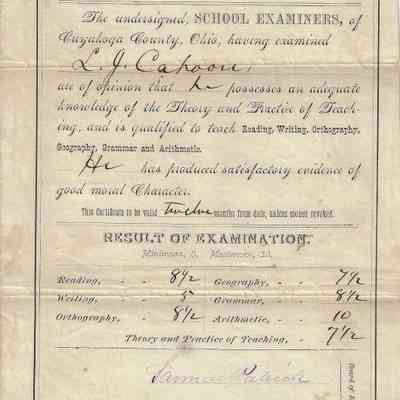 The undersigned, SCHOOL EXAMINERS, of
Cuyahoga County, Ohio, having examined
L. J. Cahoon,
are of opinion that he possesses an adequate
knowledge of the Theory and Practice of Teach-
ing, and is qualified to teach Reading, Writing, Orthography,
Geography, Grammar and Arithmetic.
He has produced satisfactory evidence of
good moral Character.
This Certificate to be valid twelve months from date, unless sooner revoked.
RESULT OF EXAMINATION.
Minimum, 0. Maximum, 10.
Reading, - - 8½ Geography, - - 7½
Writing, - - 5 Grammar, - - 8½
Orthography, - 8½ Arithmetic, - - 10
Theory and Practice of Teaching, - - 7½
Samuel
Board of